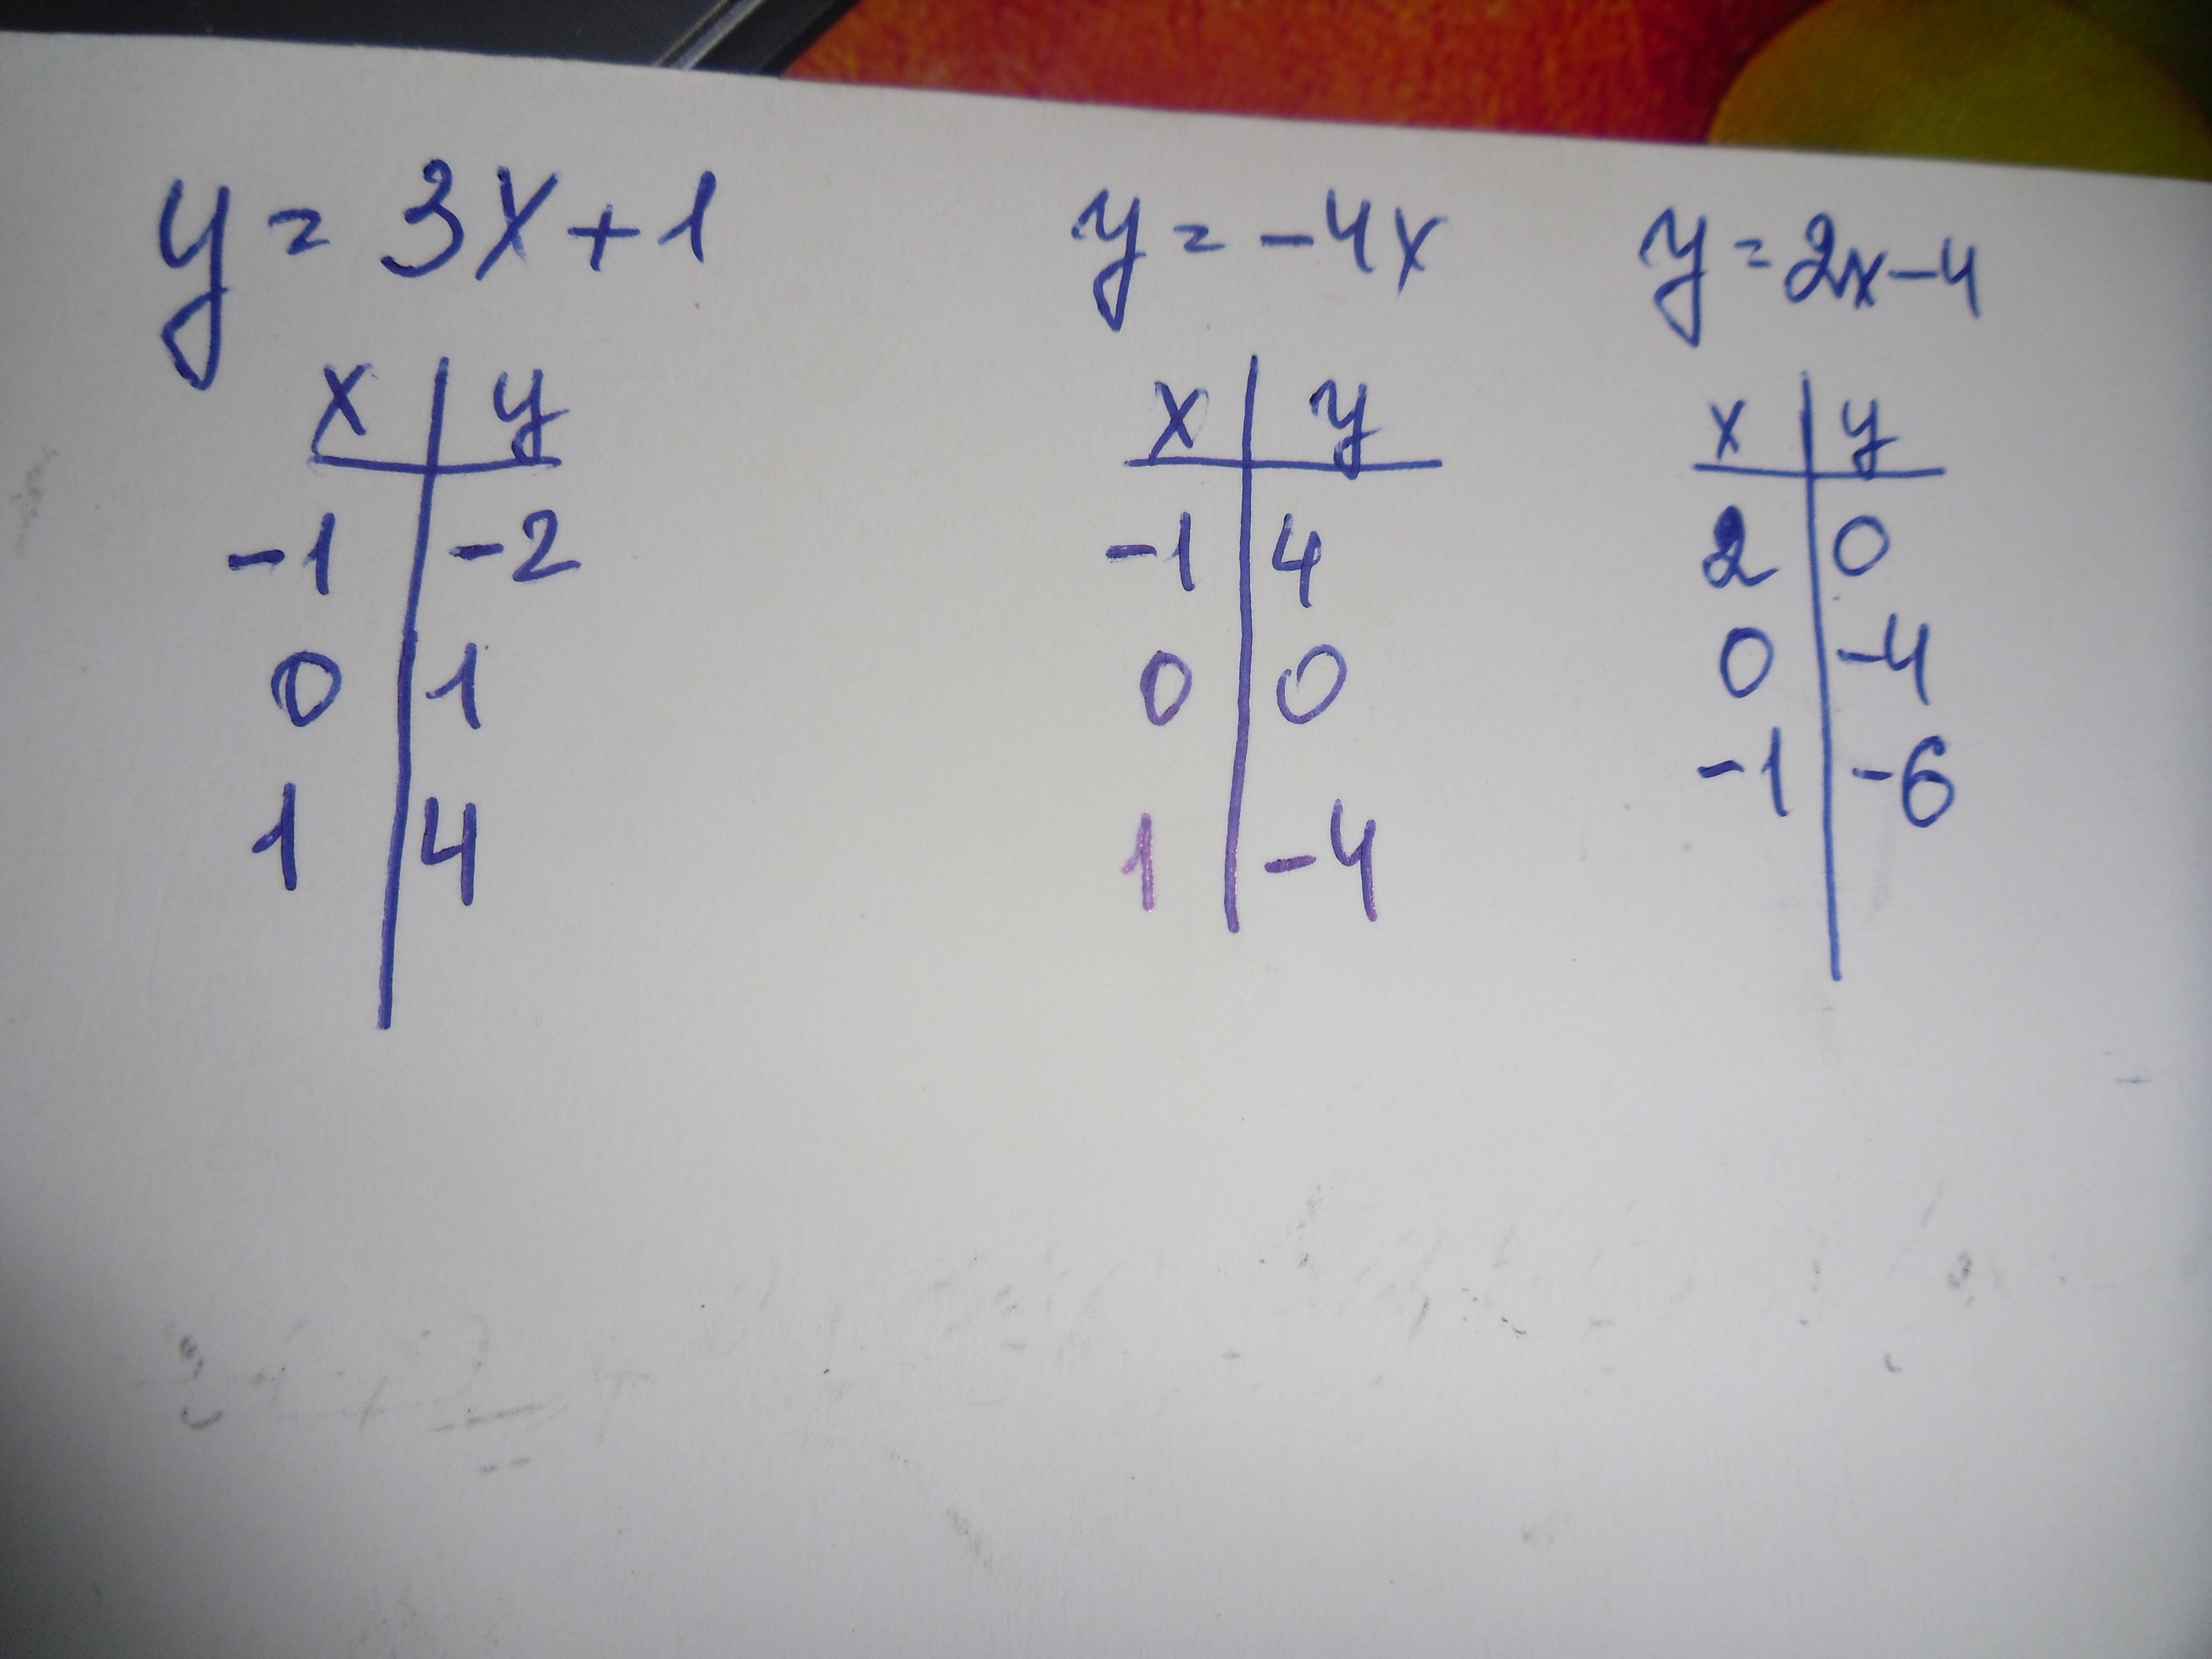 y = 3x + 1
x y
-1 -2
0 1
1 4
y = -4x
x y
-1 4
0 0
1 -4
y = 2x - 4
x y
2 0
0 -4
-1 -6